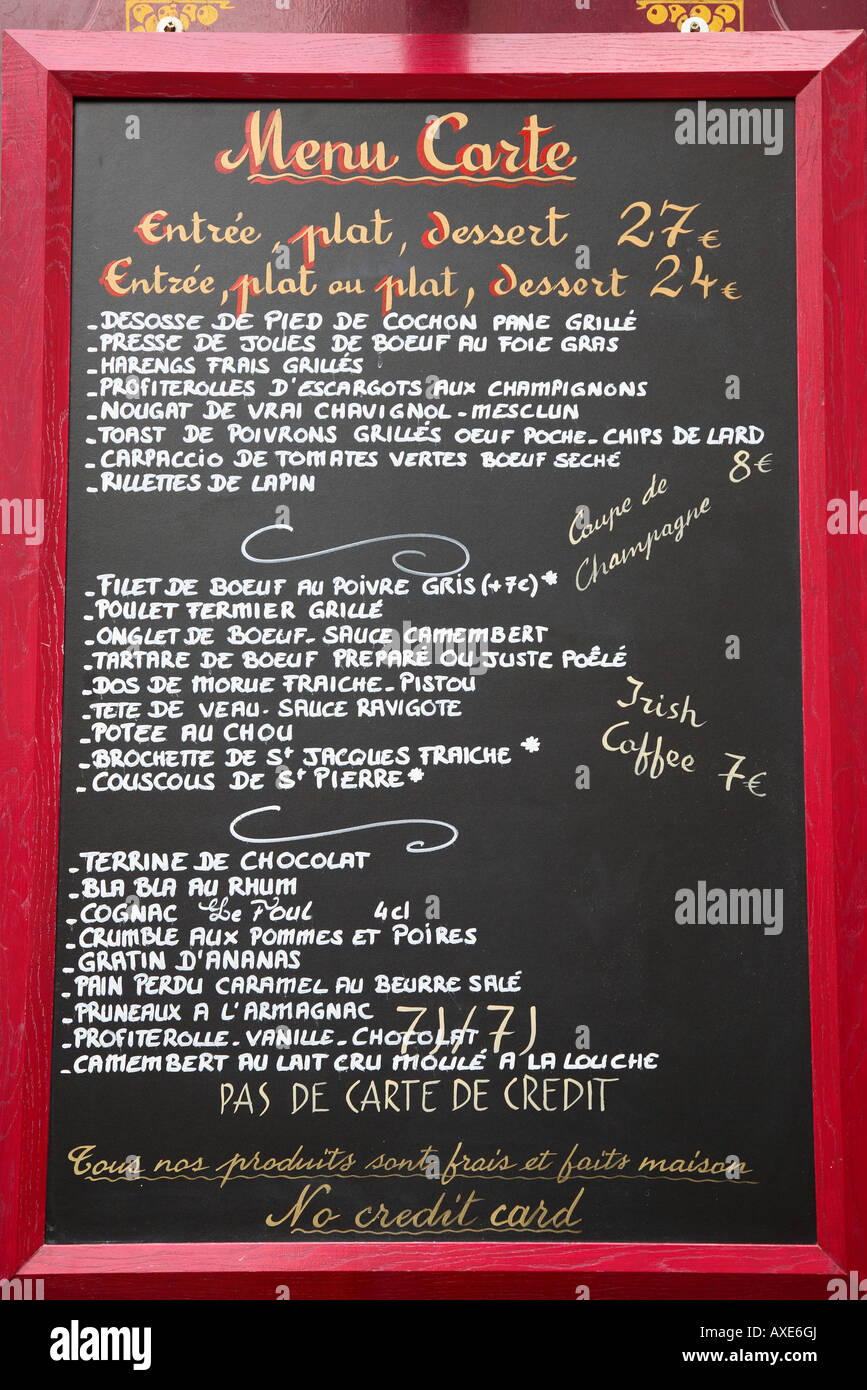 Menu Carte
Entrée, plat, dessert 27€
Entrée, plat ou plat, dessert 24€
-DESOSSE DE PIED DE COCHON PANE GRILLÉ
-PRESSE DE JOUES DE BOEUF AU FOIE GRAS
-HARENGS FRAIS GRILLÉS
-PROFITEROLLES D'ESCARGOTS AUX CHAMPIGNONS
-NOUGAT DE VRAI CHAVIGNOL-MESCLUN
-TOAST DE POIVRONS GRILLÉS OEUF POCHE-CHIPS DE LARD
-CARPACCIO DE TOMATES VERTES BOEUF SECHÉ
-RILLETTES DE LAPIN
Coupe de 8€
Champagne
-FILET DE BOEUF AU POIVRE GRIS (+7€)*
-POULET FERMIER GRILLÉ
-ONGLET DE BOEUF-SAUCE CAMEMBERT
-TARTARE DE BOEUF PREPARÉ OU JUSTE POÊLÉ
-DOS DE MORUE FRAICHE-PISTOU
-TETE DE VEAU-SAUCE RAVIGOTE
-POTEE AU CHOU
-BROCHETTE DE St JACQUES FRAICHE *
-COUSCOUS DE St PIERRE*
Irish
Coffee 7€
-TERRINE DE CHOCOLAT
-BLA BLA AU RHUM
-COGNAC Le Foul 4cl
-CRUMBLE AUX POMMES ET POIRES
-GRATIN D'ANANAS
-PAIN PERDU CARAMEL AU BEURRE SALÉ
-PRUNEAUX A L'ARMAGNAC
7J/7J
-PROFITEROLLE-VANILLE-CHOCOLAT
-CAMEMBERT AU LAIT CRU MOULÉ A LA LOUCHE
PAS DE CARTE DE CREDIT
Tous nos produits sont frais et faits maison
No credit card
alamy
alamy
Image ID: AXE6GJ
www.alamy.com